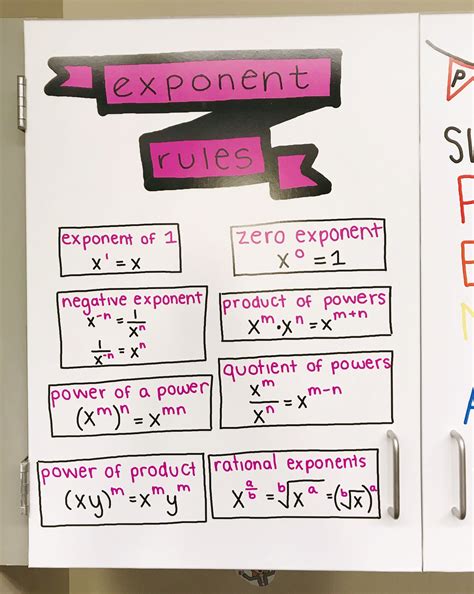 exponent
rules
exponent of 1
x¹ = x
zero exponent
x⁰ = 1
negative exponent
x⁻ⁿ = 1/xⁿ
1/x⁻ⁿ = xⁿ
product of powers
xᵐ · xⁿ = xᵐ⁺ⁿ
power of a power
(xᵐ)ⁿ = xᵐⁿ
quotient of powers
xᵐ/xⁿ = xᵐ⁻ⁿ
power of product
(xy)ᵐ = xᵐyᵐ
rational exponents
x^(a/b) = ᵇ√xᵃ = (ᵇ√x)ᵃ
P